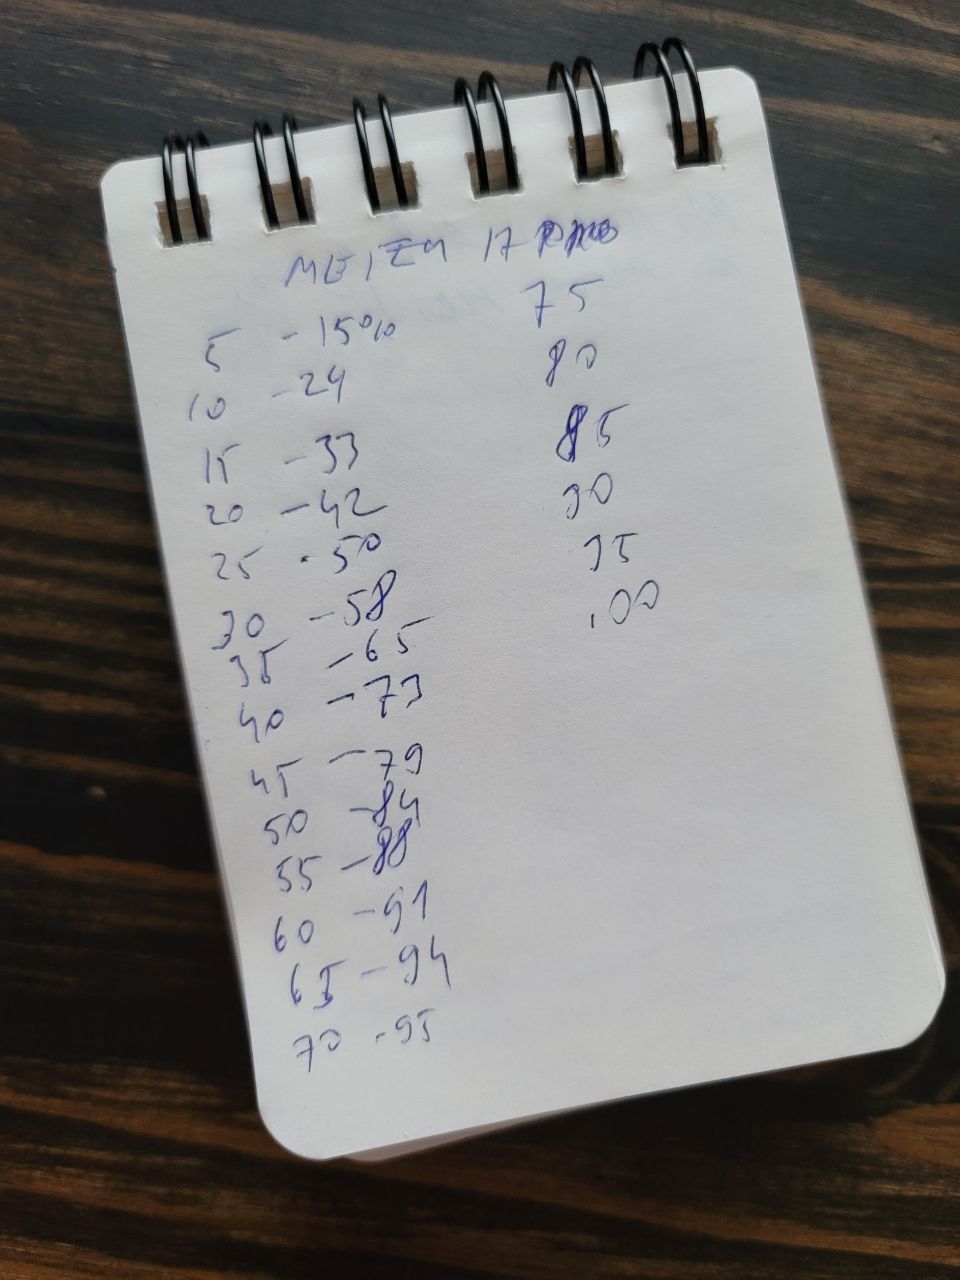 MEIZU 17 PRO
5 -15%
10 -24
15 -33
20 -42
25 -50
30 -58
35 -65
40 -73
45 -79
50 -84
55 -88
60 -91
65 -94
70 -95
75
80
85
90
95
100